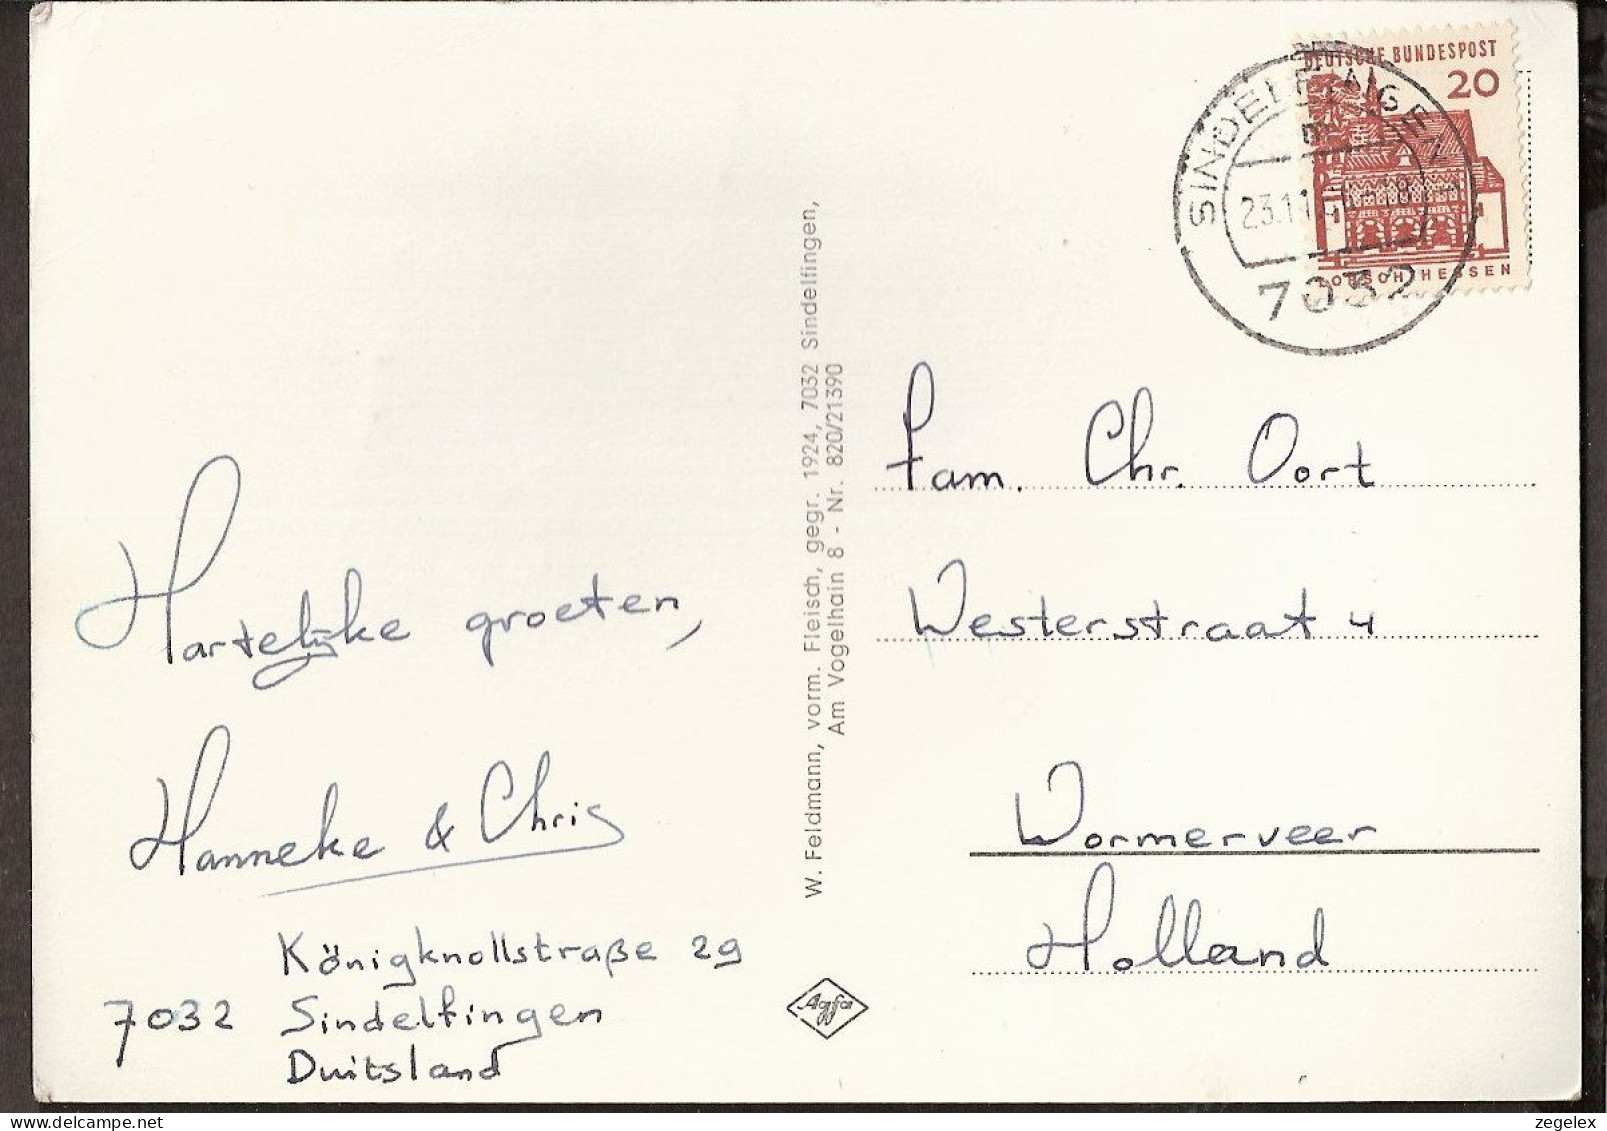 Hartelijke groeten,
Hanneke & Chris
Königknollstraße 29
7032 Sindelfingen
Duitsland
W. Feldmann, vorm. Fleisch, gegr. 1924, 7032 Sindelfingen,
Am Vogelhain 8 - Nr. 820/21390
Agfa
DEUTSCHE BUNDESPOST
20
LORSCH/HESSEN
SINDELFINGEN
23.11.
7032
Fam. Chr. Oort
Westerstraat 4
Wormerveer
Holland
zegelex